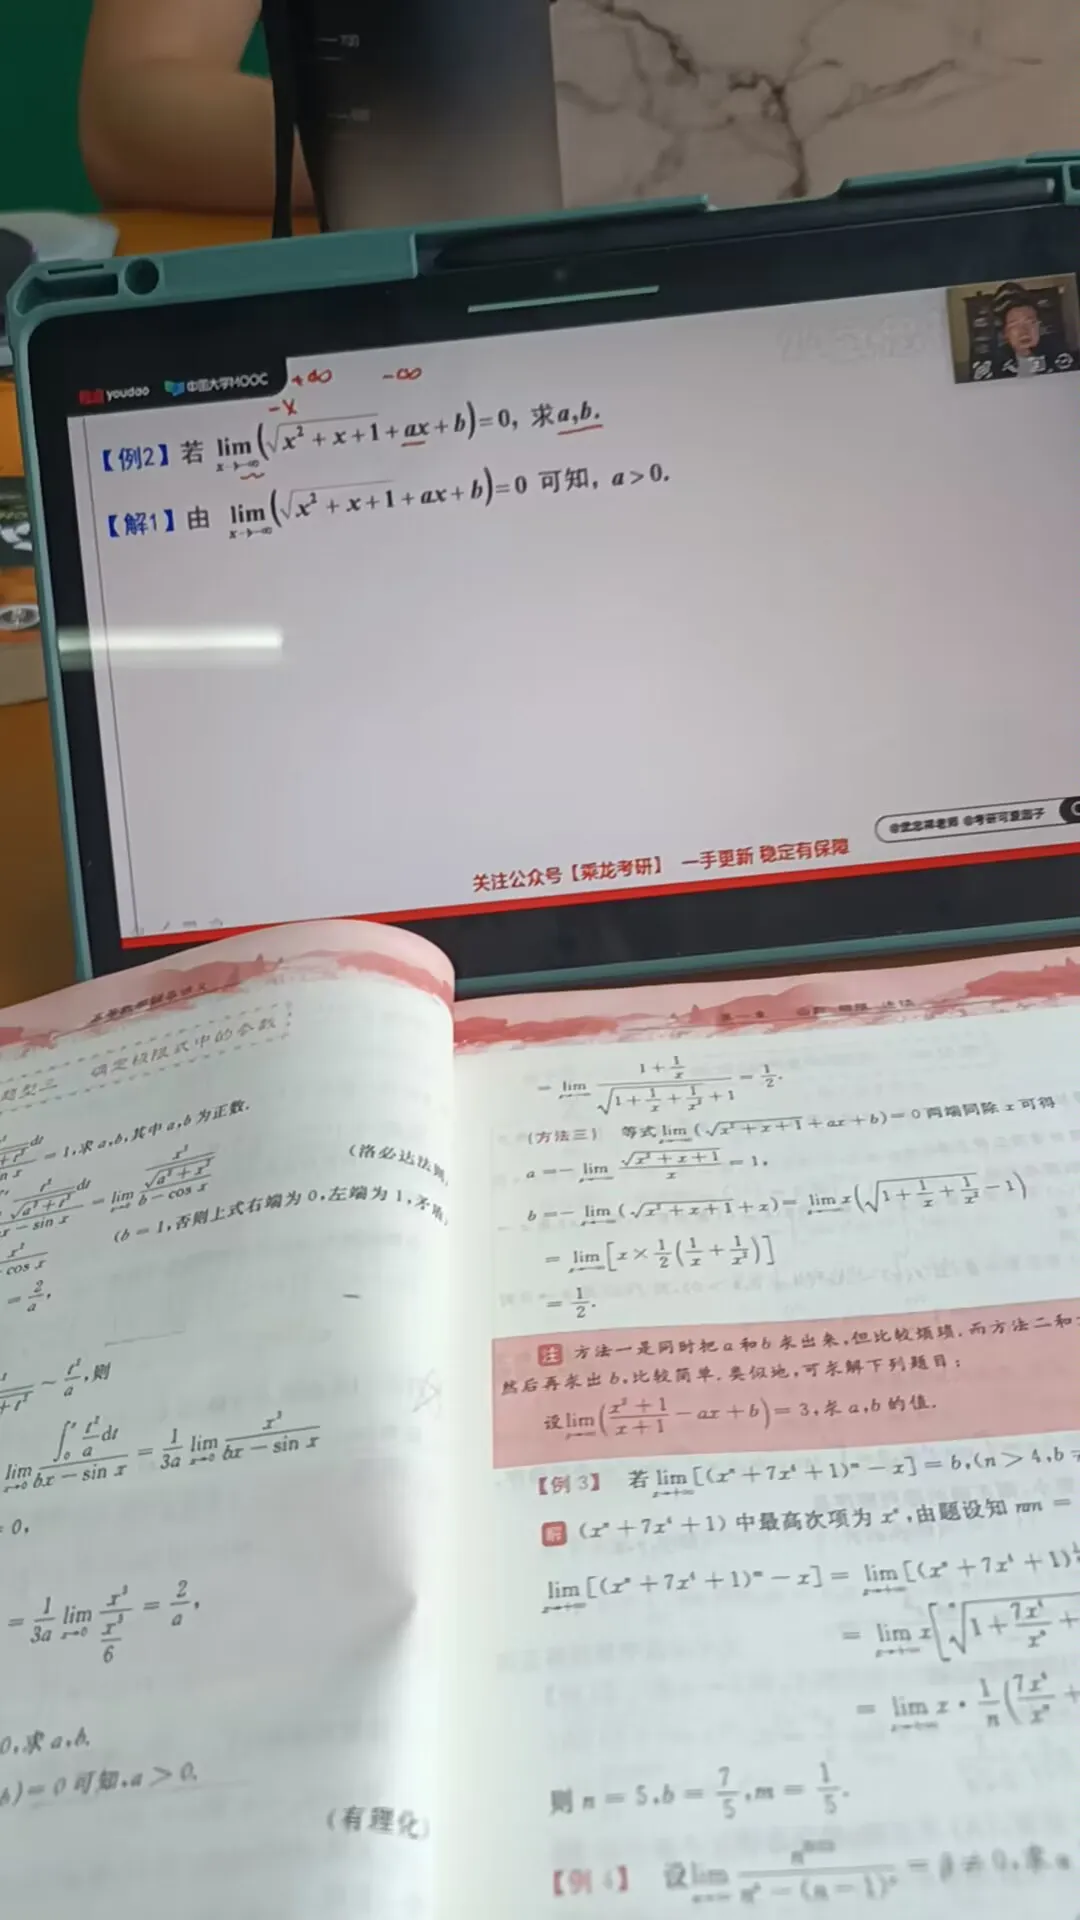 youdao 中国大学MOOC +∞ -∞
-x
【例2】若 lim x→-∞ (√(x² + x + 1) + ax + b) = 0, 求a,b.
【解1】由 lim x→-∞ (√(x² + x + 1) + ax + b) = 0 可知, a > 0.
关注公众号【乘龙考研】 一手更新 稳定有保障
题型三 确定极限式中的参数
= 1,求 a,b,其中 a,b 为正数.
(洛必达法则
(b = 1,否则上式右端为 0,左端为 1,矛盾
= 2/a,
~ t²/a,则
lim x→0 ∫₀ˣ t²/a dt / (bx − sin x) = 1/3a lim x→0 x³ / (bx − sin x)
= 0,
= 1/3a lim x→0 x³ / (x³/6) = 2/a,
0,求 a,b.
b) = 0 可知,a > 0.
(有理化)
= lim (1 + 1/x) / (√(1 + 1/x + 1/x²) + 1) = 1/2.
(方法三) 等式 lim (√(x² + x + 1) + ax + b) = 0 两端同除 x 可得
a = − lim √(x² + x + 1) / x = 1,
b = − lim (√(x² + x + 1) + x) = lim x(√(1 + 1/x + 1/x²) − 1)
= lim [x × 1/2 (1/x + 1/x²)]
= 1/2.
注 方法一是同时把 a 和 b 求出来,但比较烦琐.而方法二和
然后再求出 b,比较简单.类似地,可求解下列题目:
设 lim ((x² + 1)/(x + 1) − ax + b) = 3,求 a,b 的值.
【例 3】 若 lim x→+∞ [(xⁿ + 7x⁴ + 1)ᵐ − x] = b,(n > 4,b ≠
解 (xⁿ + 7x⁴ + 1) 中最高次项为 xⁿ,由题设知 nm =
lim x→+∞ [(xⁿ + 7x⁴ + 1)ᵐ − x] = lim x→+∞ [(xⁿ + 7x⁴ + 1)
= lim x→+∞ x[ⁿ√(1 + 7x⁴/xⁿ +
= lim x→+∞ x · 1/n (7x⁴/xⁿ +
则 n = 5,b = 7/5,m = 1/5.
【例 4】 设 lim